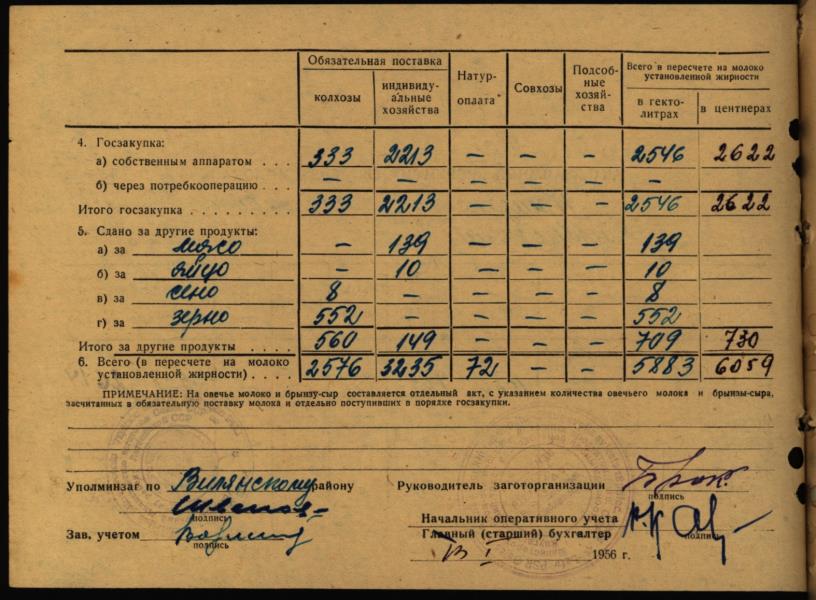 Обязательная поставка
колхозы
индивиду-
альные
хозяйства
Натур-
оплата
Совхозы
Подсоб-
ные
хозяй-
ства
Всего в пересчете на молоко
установленной жирности
в гекто-
литрах
в центнерах
4. Госзакупка:
а) собственным аппаратом . . . 333 2213 — — — 2546 2622
б) через потребкооперацию . . . — — — — — —
Итого госзакупка . . . . . . . . . 333 2213 — — — 2546 2622
5. Сдано за другие продукты:
а) за мясо — 139 — — — 139
б) за яйцо — 10 — — — 10
в) за сено 8 — — — — 8
г) за зерно 552 — — — — 552
Итого за другие продукты . . . . 560 149 — — — 709 730
6. Всего (в пересчете на молоко
установленной жирности) . . . . 2576 3235 72 — — 5883 6059
ПРИМЕЧАНИЕ: На овечье молоко и брынзу-сыр составляется отдельный акт, с указанием количества овечьего молока и брынзы-сыра,
засчитанных в обязательную поставку молока и отдельно поступивших в порядке госзакупки.
Уполминзаг по Вилянскому району
подпись
Зав. учетом
подпись
Руководитель заготорганизации
подпись
Начальник оперативного учета
Главный (старший) бухгалтер
подпись
1956 г.